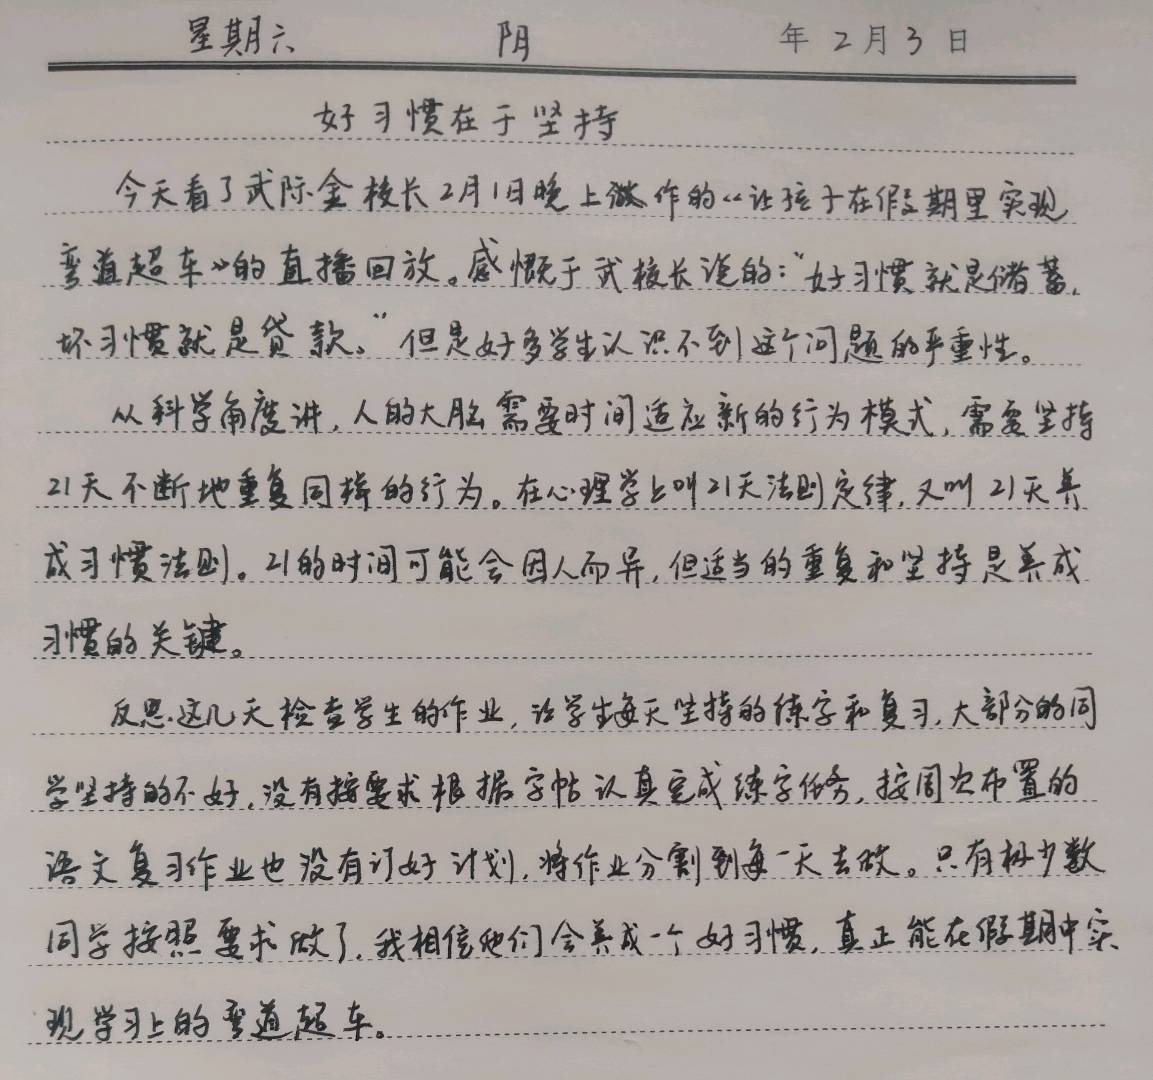 星期六 阴 年2月3日
好习惯在于坚持
今天看了武际金校长2月1日晚上做作的《让孩子在假期里实现
弯道超车》的直播回放。感慨于武校长说的:“好习惯就是储蓄,
坏习惯就是贷款。”但是好多学生认识不到这个问题的严重性。
从科学角度讲,人的大脑需要时间适应新的行为模式,需要坚持
21天不断地重复同样的行为。在心理学上叫21天法则定律,又叫21天养
成习惯法则。21的时间可能会因人而异,但适当的重复和坚持是养成
习惯的关键。
反思这几天检查学生的作业,让学生每天坚持的练字和复习,大部分的同
学坚持的不好,没有按要求根据字帖认真完成练字任务,按周次布置的
语文复习作业也没有订好计划,将作业分割到每一天去做。只有极少数
同学按照要求做了,我相信他们会养成一个好习惯,真正能在假期中实
现学习上的弯道超车。